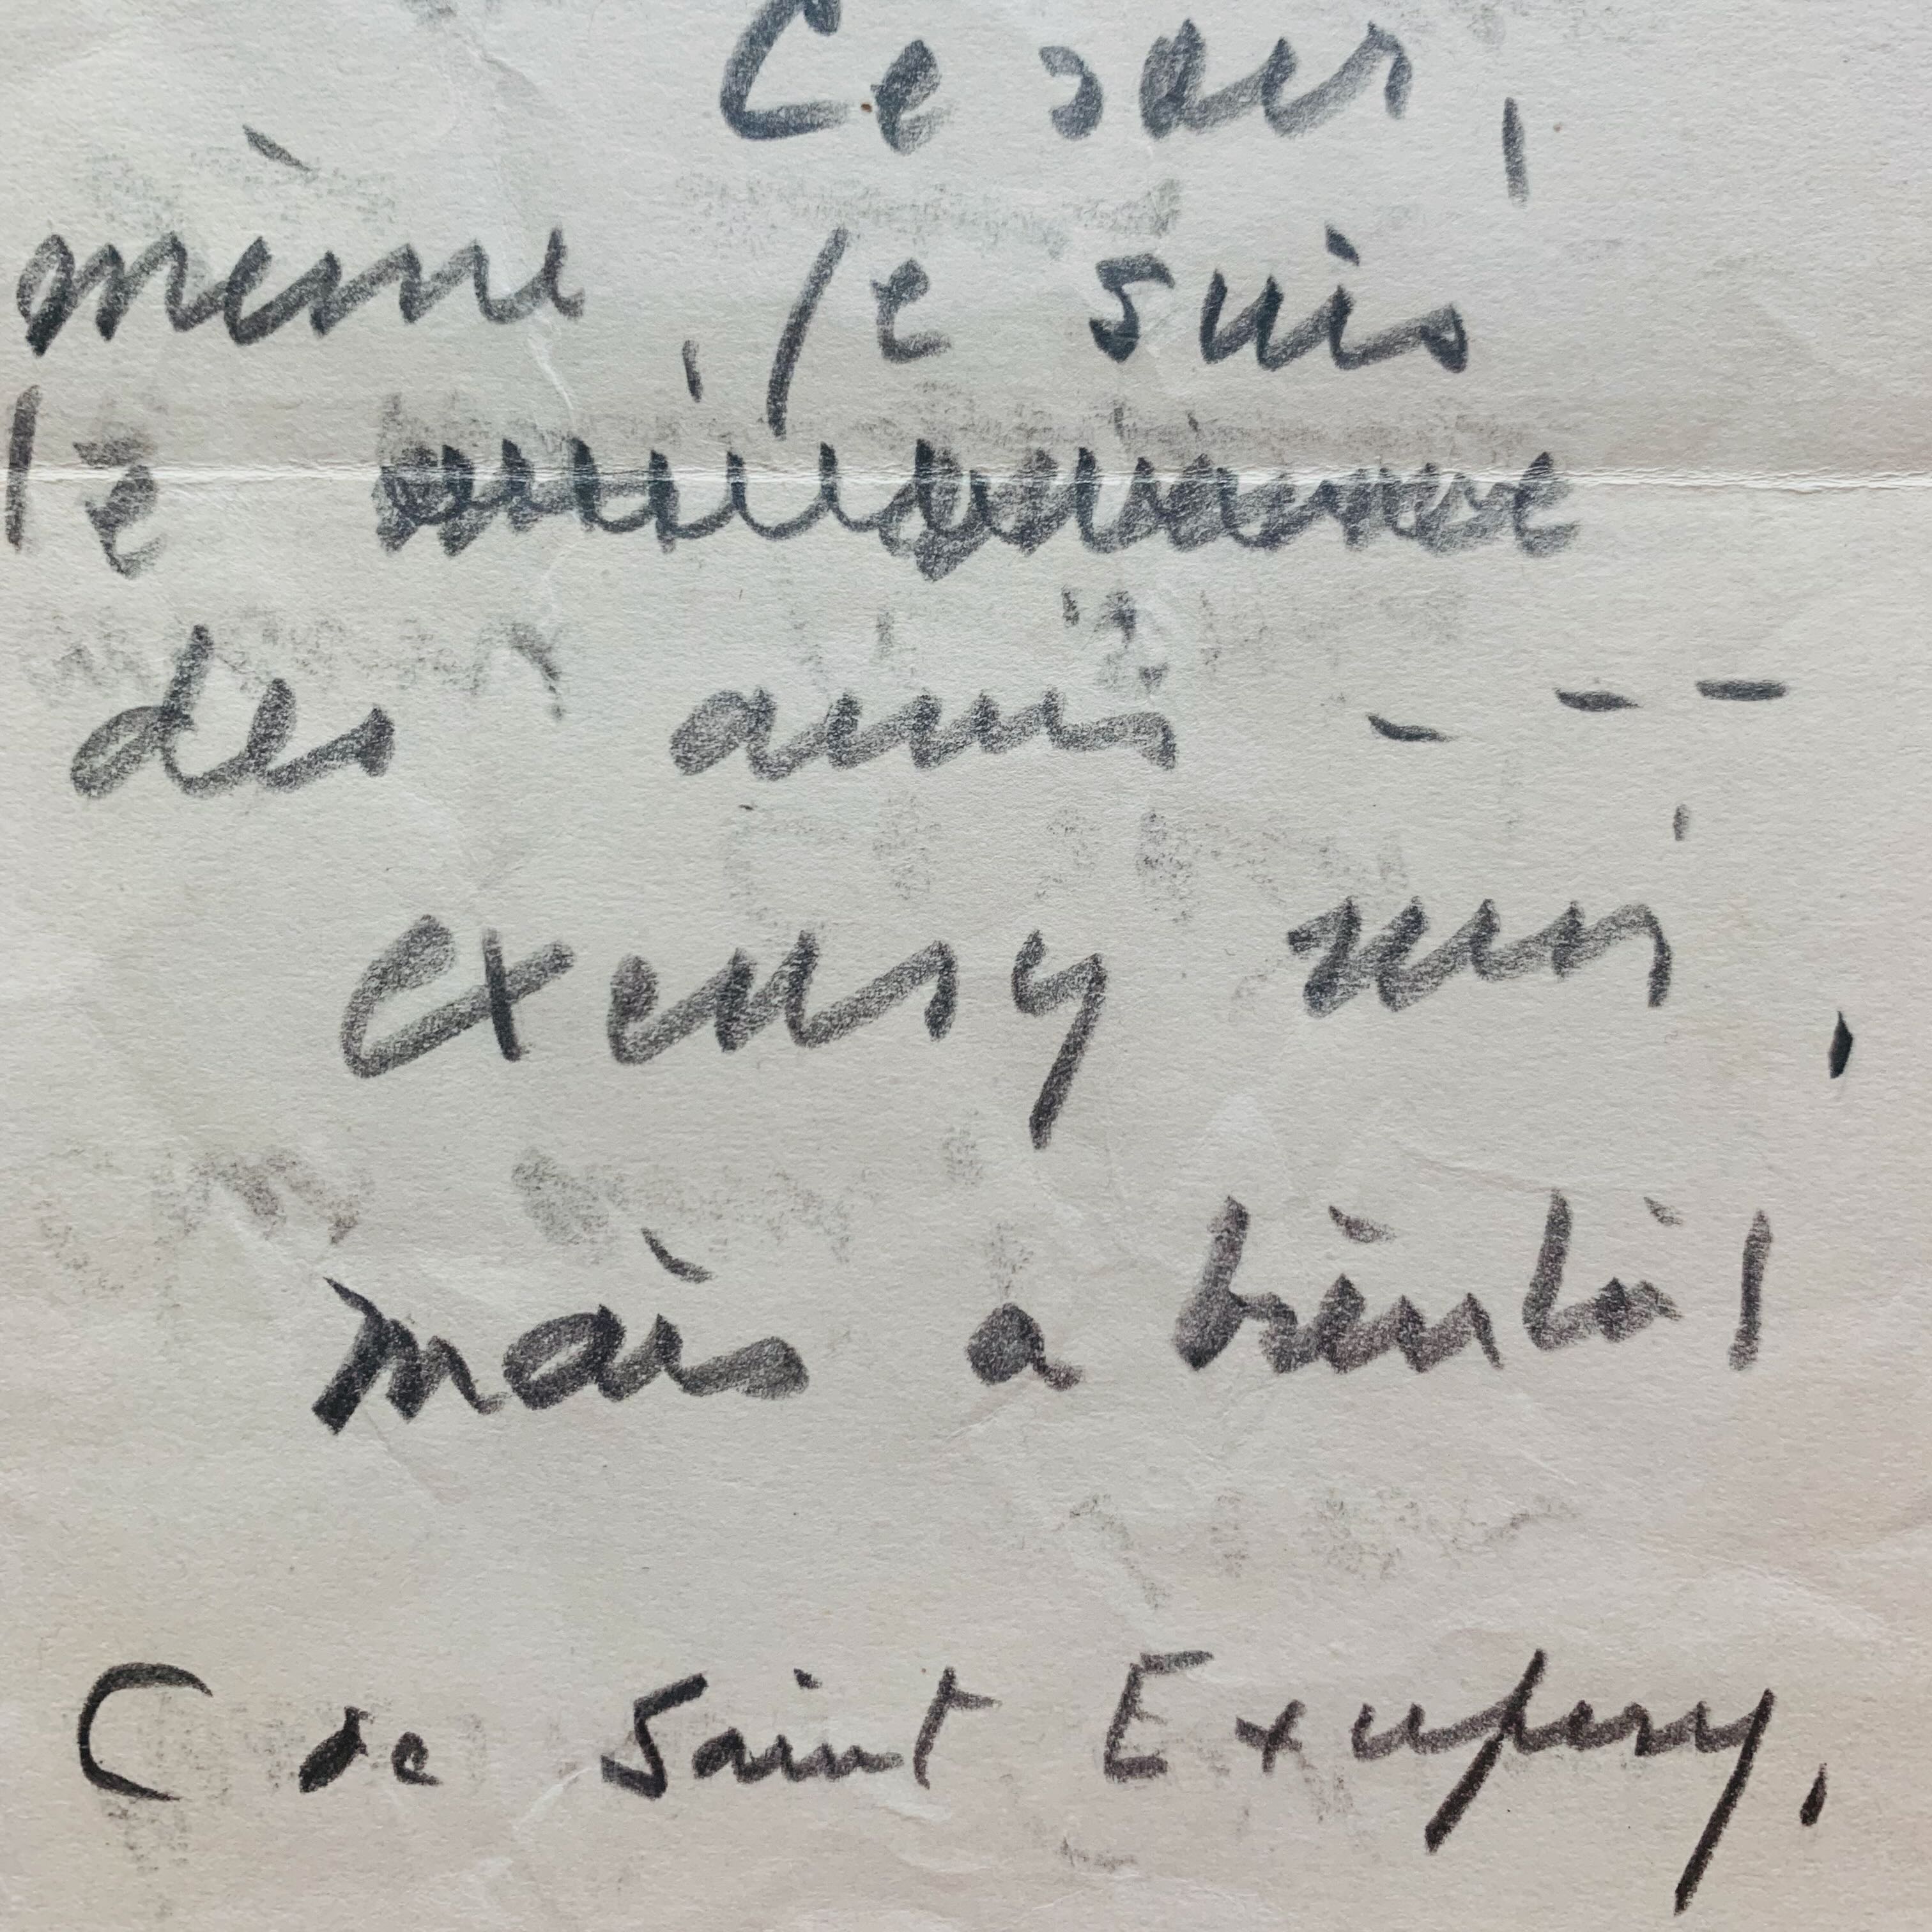 Ce soir,
même, je suis
le
des amis - - -
excusez moi,
mais a bientôt
C de Saint Exupery.